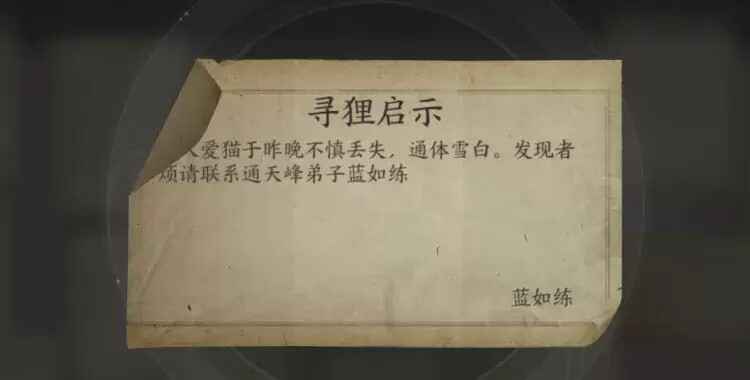 寻狸启示
人爱猫于昨晚不慎丢失，通体雪白。发现者
烦请联系通天峰弟子蓝如练
蓝如练